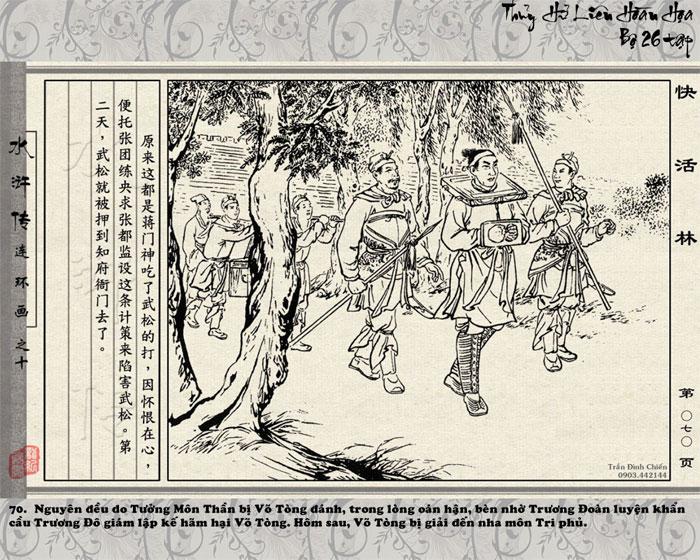 Thủy Hử Liên Hoàn Họa
Bộ 26 tập
快活林
原来这都是蒋门神吃了武松的打，因怀恨在心，
便托张团练央求张都监设这条计策来陷害武松。第
二天，武松就被押到知府衙门去了。
水浒传连环画之十
第〇七〇页
Trần Đình Chiến
0903.442144
70. Nguyên đều do Tưởng Môn Thần bị Võ Tòng đánh, trong lòng oán hận, bèn nhờ Trương Đoàn luyện khẩn
cầu Trương Đô giám lập kế hãm hại Võ Tòng. Hôm sau, Võ Tòng bị giải đến nha môn Tri phủ.